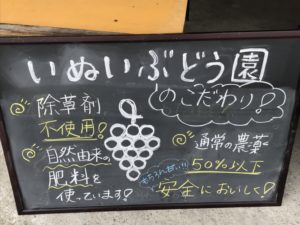 いぬいぶどう園
のこだわり!
除草剤
不使用!
自然由来の
肥料を
使っています!
通常の農薬
50%以下
もちろん甘い!!
安全においしく!